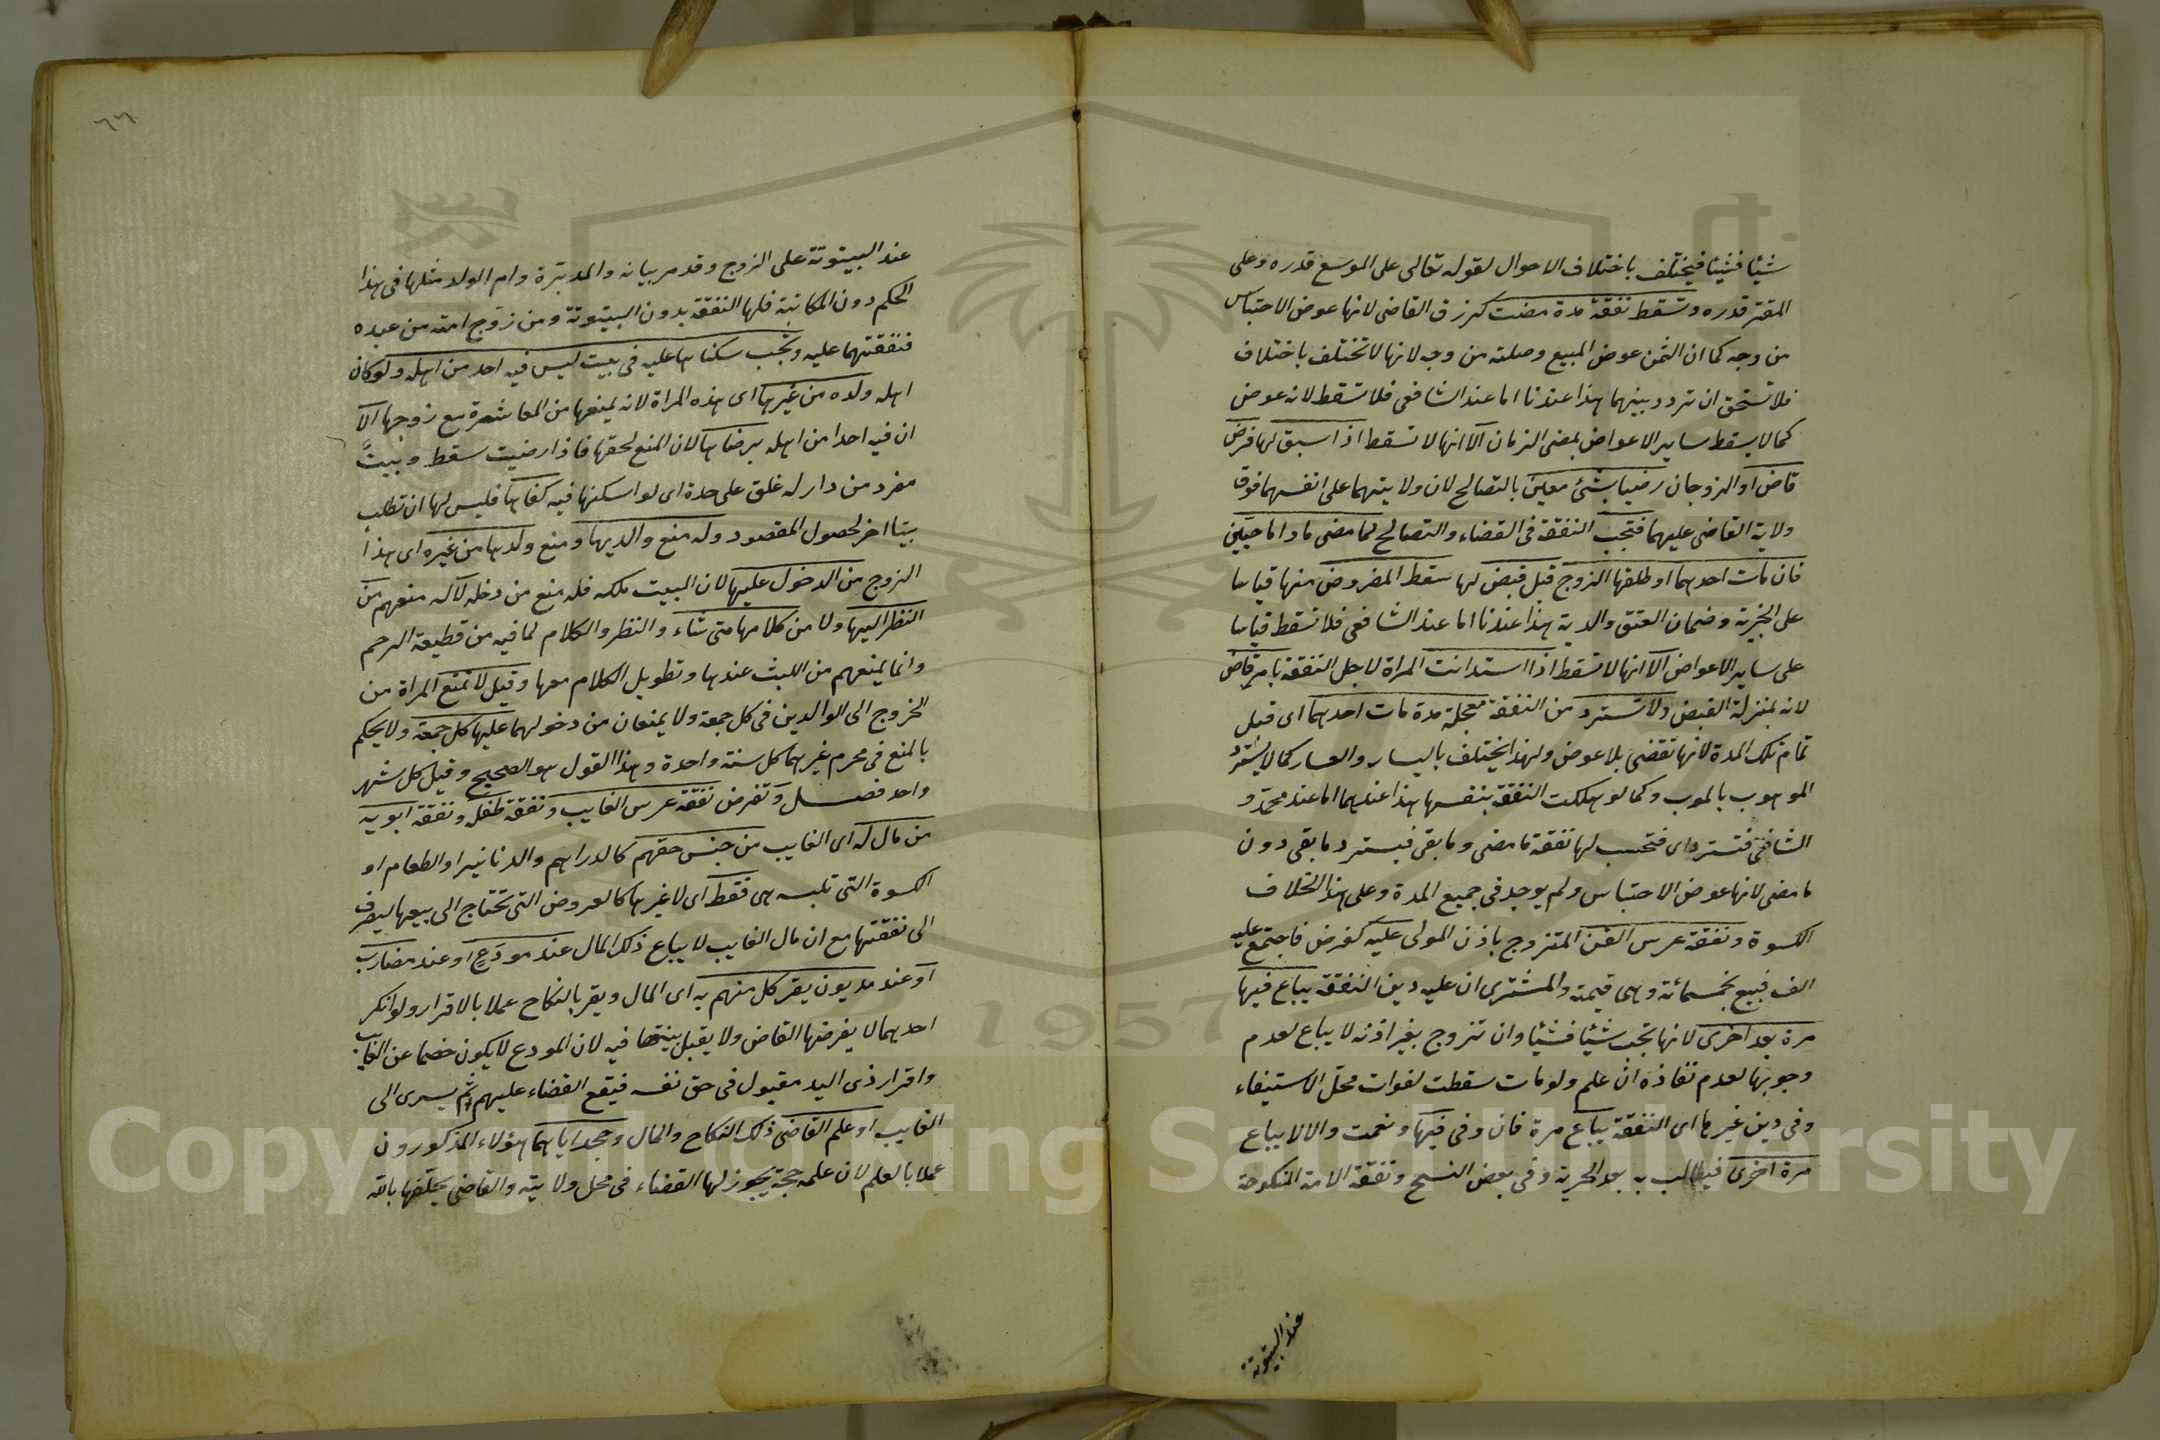 شيئا فشيئا فيختلف باختلاف الاحوال لقوله تعالى على الموسع قدره وعلى
المقتر قدره وتسقط نفقة مدة مضت كرزق القاضى لانها عوض الاحتباس
من وجه كما ان الثمن عوض المبيع وصلته من وجه لانها لا تختلف باختلاف
فلا تستحق ان تردد بينهما هذا عندنا اما عند الشافعى فلا تسقط لانه عوض
كما لا يسقط ساير الاعواض بمضى الزمان الا انها لا تسقط اذا سبق لها فرض
قاض او الزوجان رضيا بشئ معين بالتصالح لان ولايتهما على انفسهما فوق
ولاية القاضى عليهما فتجب النفقة فى القضاء والتصالح لما مضى ما داما حيين
فان مات احدهما او طلقها الزوج قبل قبض لها سقط المفروض منها قياسا
على الجزية وضمان العتق والدية هذا عندنا اما عند الشافعى فلا تسقط قياسا
على ساير الاعواض الا انها لا تسقط اذا استدانت المراة لاجل النفقة بامر قاض
لانه بمنزلة القبض ولا تسترد من النفقة معجلة مدة مات احدهما اى قبل
تمام تلك المدة لانها تقضى بلا عوض ولهذا يختلف باليسار والعسار كما لا يسترد
الموهوب بالموب وكما لو هلكت النفقة بنفسها هذا عندهما اما عند محمد و
الشافعى فتسترد اى فتحسب لها نفقة ما مضى وما بقى فيسترد ما بقى دون
ما مضى لانها عوض الاحتباس ولم يوجد فى جميع المدة وعلى هذا الخلاف
الكسوة ونفقة عرس القن المتزوج باذن المولى عليه كفرض فاجتمع عليه
الف فبيع بخمسمائة وهى قيمته والمشترى ان عليه دين النفقة يباع فيها
مرة بعد اخرى لانها تجب شيئا فشيئا وان تزوج بغير اذنه لا يباع لعدم
وجوبها لعدم نفاذه ان علم ولو مات سقطت لفوات محل الاستيفاء
وفى دين غيرها اى النفقة يباع مرة فان وفى فيها ونعمت والا لا يباع
مرة اخرى فيطالب به بعد الحرية وفى بعض النسخ ونفقة الامة المنكوحة
عند البيتوتة
٦٦
عند البيتوتة على الزوج وقد مر بيانه والمدبرة وام الولد مثلها فى هذا
الحكم دون المكاتبة فلها النفقة بدون البيتوتة ومن زوج امته من عبده
فنفقتهما عليه وتجب سكناها عليه فى بيت ليس فيه احد من اهله ولو كان
اهله ولده من غيرها اى هذه المراة لانه يمنعها من المعاشرة مع زوجها الا
ان فيه احدا من اهله برضاها لان المنع لحقها فاذا رضيت سقط وبيت
مفرد من دار له غلق على حدة اى لو اسكنها فيه كفاها فليس لها ان تطلب
بيتا اخر لحصول المقصود وله منع والديها ومنع ولدها من غيره اى هذا
الزوج من الدخول عليها لان البيت ملكه فله منع من دخله لا له منعهم من
النظر اليها ولا من كلامها متى شاء والنظر والكلام لما فيه من قطيعة الرحم
وانما يمنعهم من اللبث عندها وتطويل الكلام معها وقيل لا تمنع المراة من
الخروج الى الوالدين فى كل جمعة ولا يمنعان من دخولهما عليها كل جمعة ولا يحكم
بالمنع فى محرم غيرهما كل سنة واحدة وهذا القول هو الصحيح وقيل كل شهر
واحد فصل وتفرض نفقة عرس الغايب ونفقة طفله ونفقة ابويه
من مال له اى الغايب من جنس حقهم كالدراهم والدنانير او الطعام او
الكسوة التى تلبسه هى فقط اى لا غيرها كالعروض التى تحتاج الى بيعها ليصرف
الى نفقتها مع ان مال الغايب لا يباع ذلك المال عند مودع او عند مضارب
او عند مديون يقر كل منهم به اى المال ويقر بالنكاح عملا بالاقرار ولو انكر
احدهما لا يفرضها القاضى ولا يقبل بينتها فيه لان المودع لا يكون خصما عن الغايب
واقرار ذى اليد مقبول فى حق نفسه فيقع القضاء عليهم ثم يسرى الى
الغايب او علم القاضى ذلك النكاح والمال وجحد اياهما هؤلاء المذكورون
عملا بالعلم لان علمه حجة يجوز لها القضاء فى محل ولايته والقاضى يحلفها بالله
Copyright © King Saud University
1957